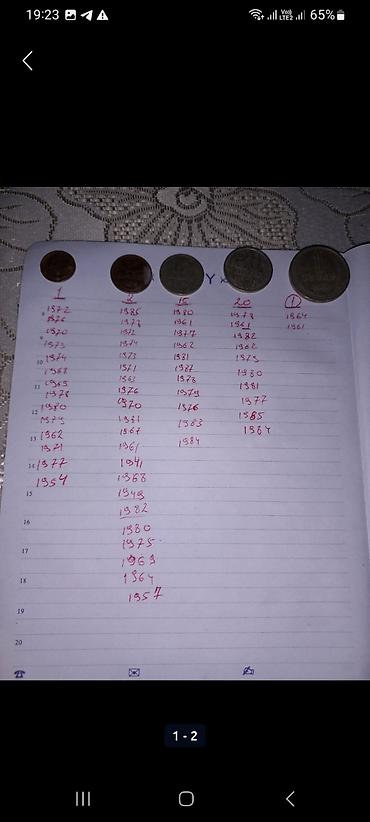 19:23 LTE2 65%
1 3 15 20 1
1972 1986 1980 1978 1964
1976 1977 1961 1961 1961
1970 1972 1977 1982
1975 1974 1962 1962
1974 1973 1981 1973
1968 1971 1987 1980
1985 1963 1978 1981
1978 1976 1979 1977
1980 1970 1976 1985
1979 1981 1983 1984
1962 1967 1984
1971 1961
1977 1941
1954 1968
1949
1982
1980
1975
1969
1964
1957
8
9
10
11
12
13
14
15
16
17
18
19
20
1 - 2